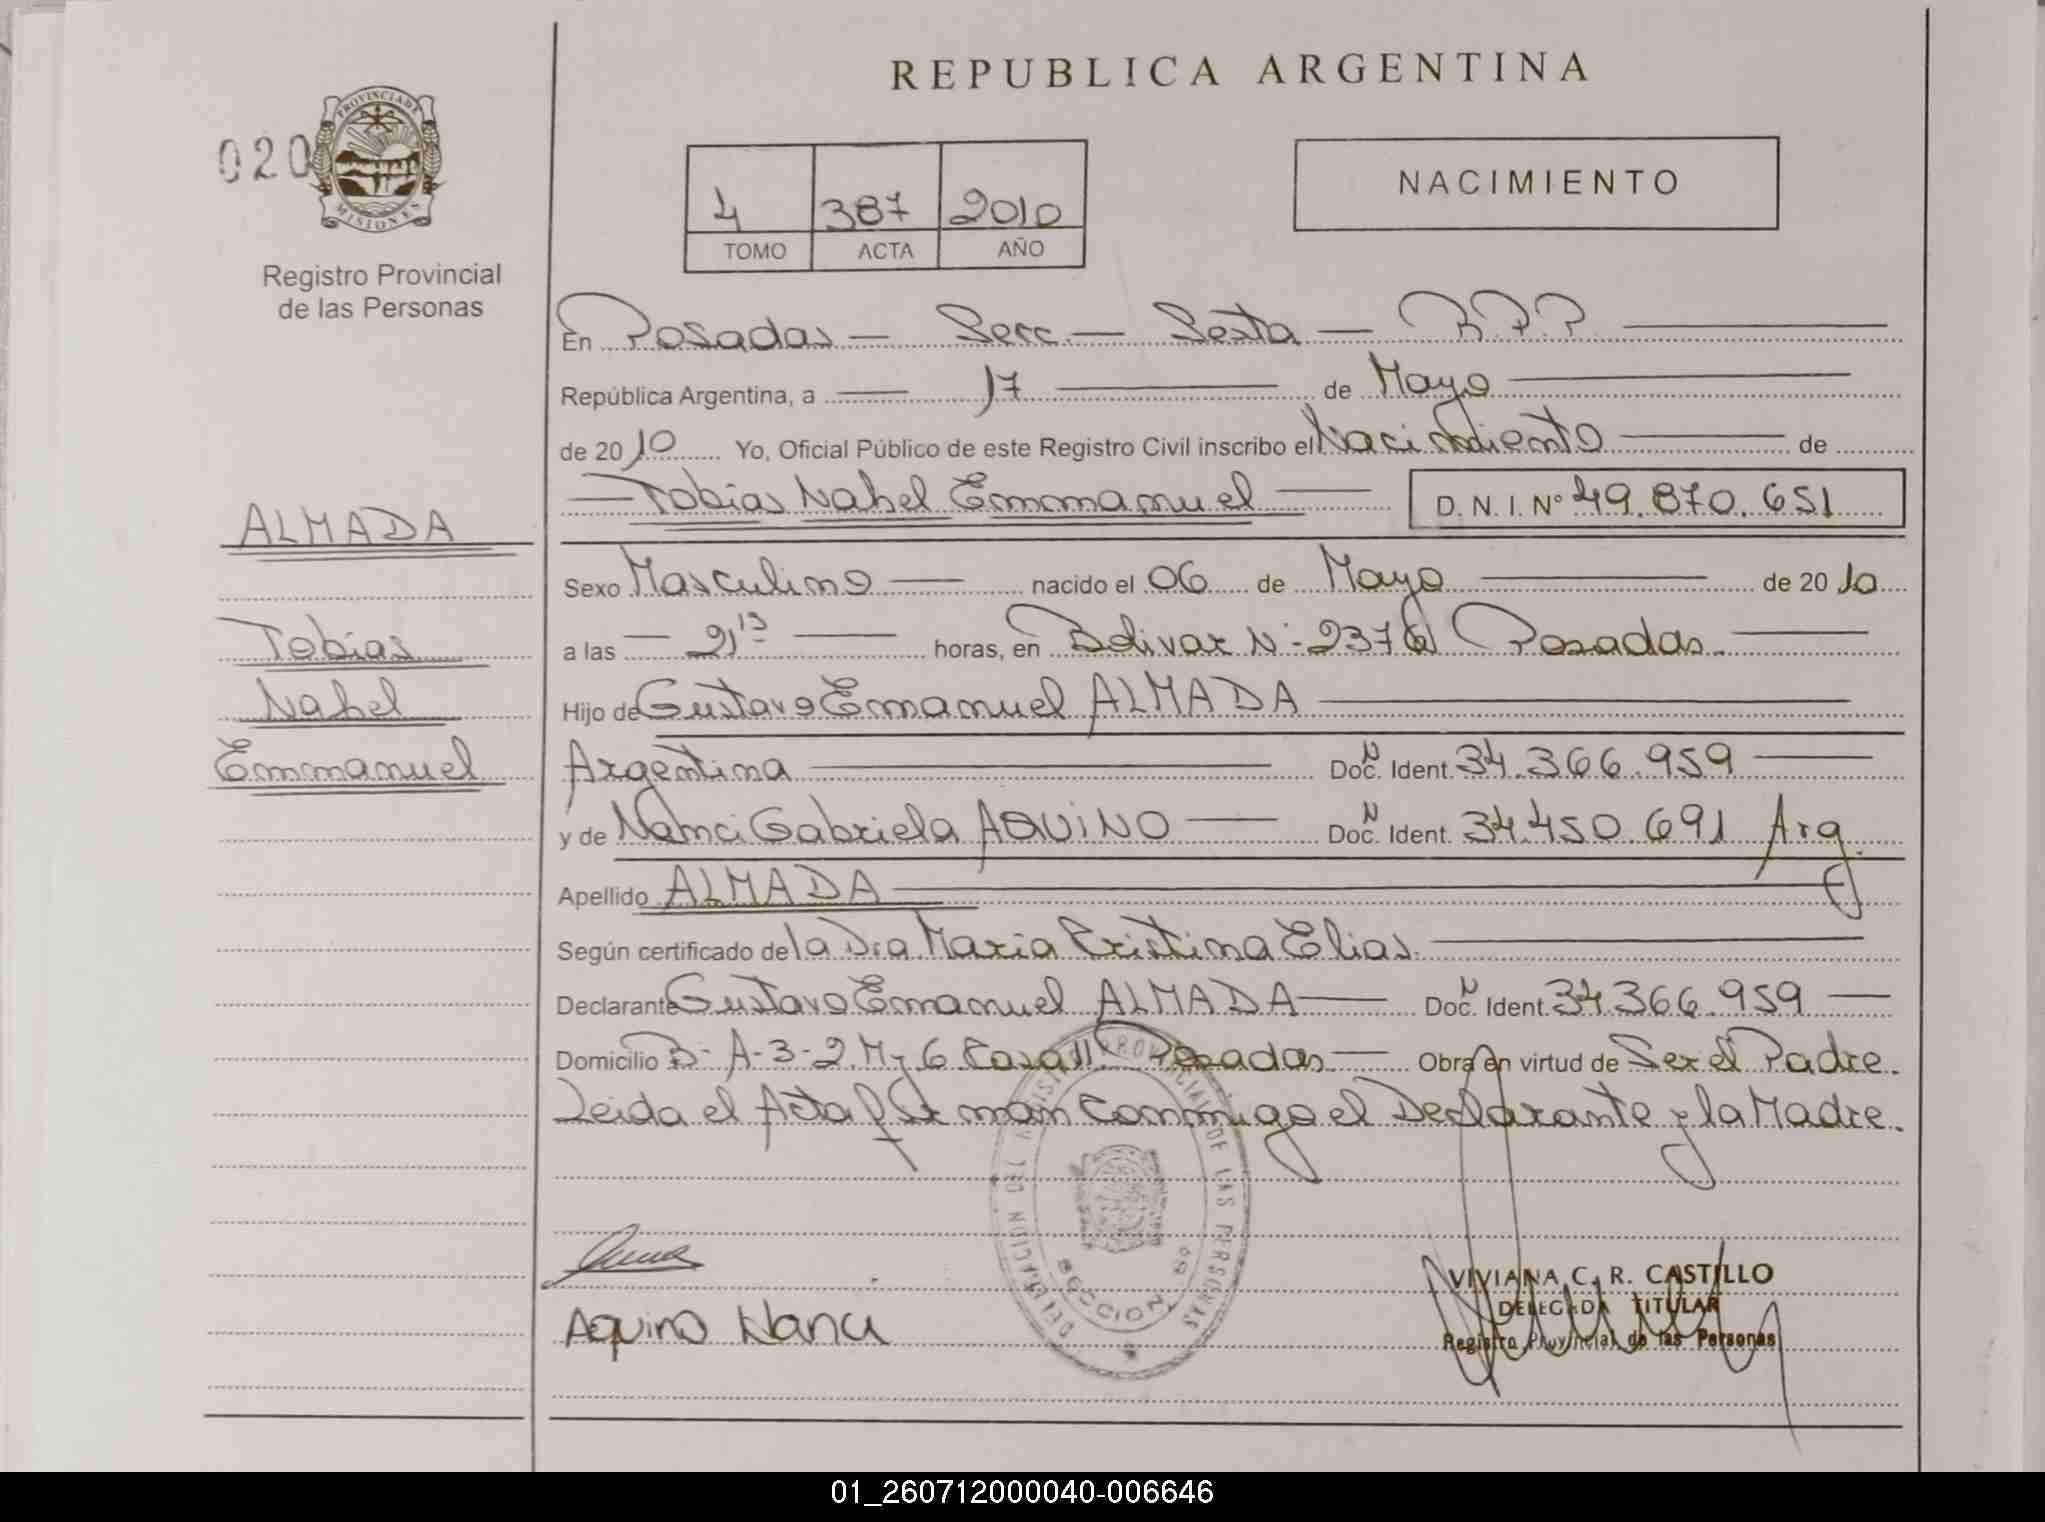 REPUBLICA ARGENTINA
020
PROVINCIA DE
MISIONES
Registro Provincial
de las Personas
4 387 2010
TOMO ACTA AÑO
NACIMIENTO
En Posadas — Secc. — Sexta — R.P.P.
República Argentina, a — 17 — de Mayo
de 2010 Yo, Oficial Público de este Registro Civil inscribo el Nacimiento — de
— Tobias Nahel Emmanuel — D. N. I. Nº 49.870.651
ALMADA
Tobias
Nahel
Emmanuel
Sexo Masculino — nacido el 06 de Mayo — de 2010
a las — 21 15 — horas, en Bolivar Nº 2376 Posadas. —
Hijo de Gustavo Emanuel ALMADA —
Argentina — Doc. N Ident. 34.366.959 —
y de Nanci Gabriela AQUINO — Doc. N Ident. 34.450.691 Arg.
Apellido ALMADA —
Según certificado de la Dra Maria Cristina Elias. —
Declarante Gustavo Emanuel ALMADA — Doc. N Ident. 34.366.959 —
Domicilio B- A-3-2. Mz 6. Casa 11. Posadas — Obra en virtud de Ser el Padre.
Leida el Acta firman conmigo el Declarante y la Madre.
DELEGACION DEL REGISTRO PROVINCIAL DE LAS PERSONAS
SECCION 6º
Aquino Nanci
VIVIANA C. R. CASTILLO
DELEGADA TITULAR
Registro Provincial de las Personas
01_260712000040-006646